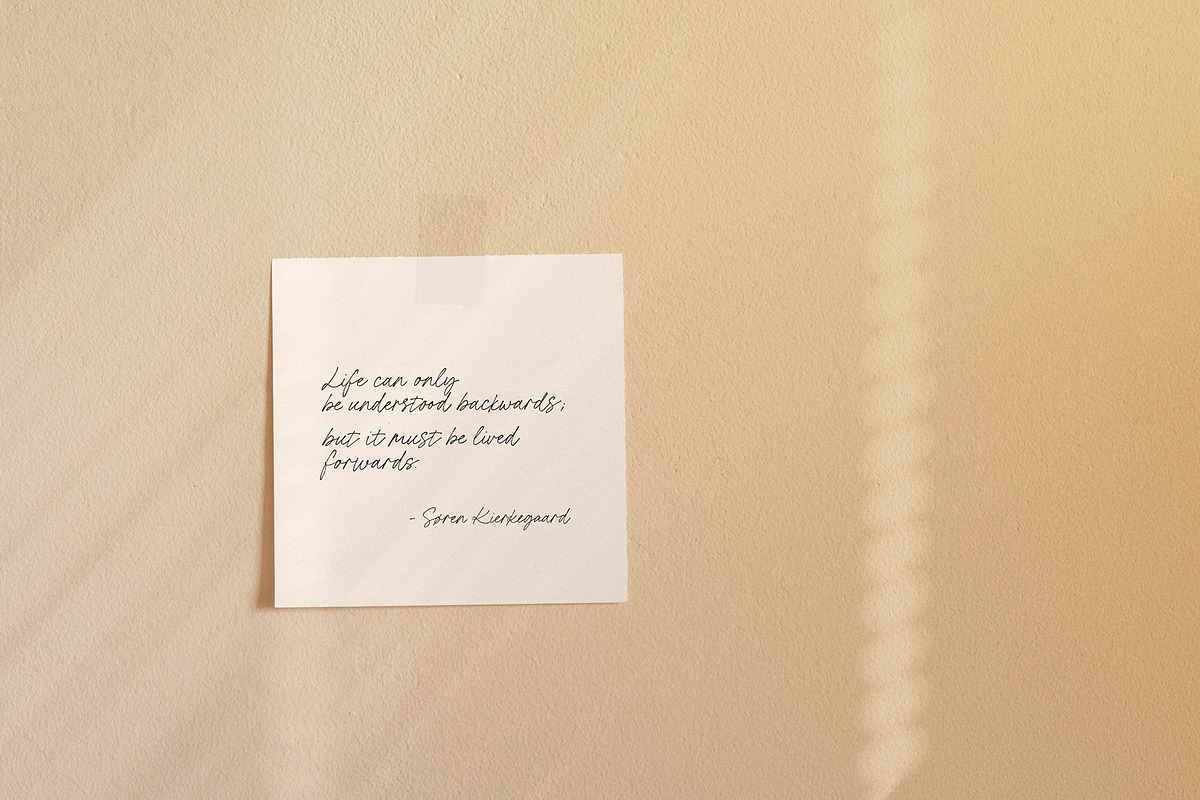 Life can only
be understood backwards;
but it must be lived
forwards.
- Søren Kierkegaard